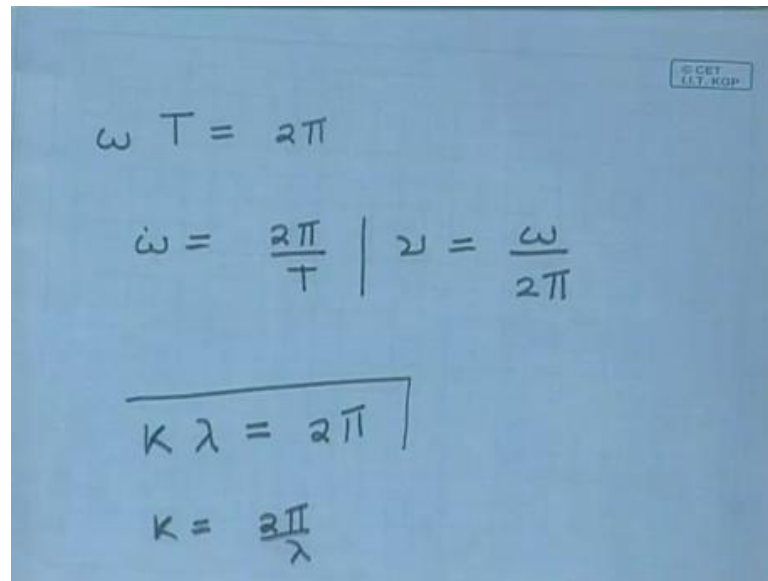 © CET
I.I.T. KGP
ω T = 2π
ω = 2π/T | ν = ω/2π
K λ = 2π
K = 2π/λ